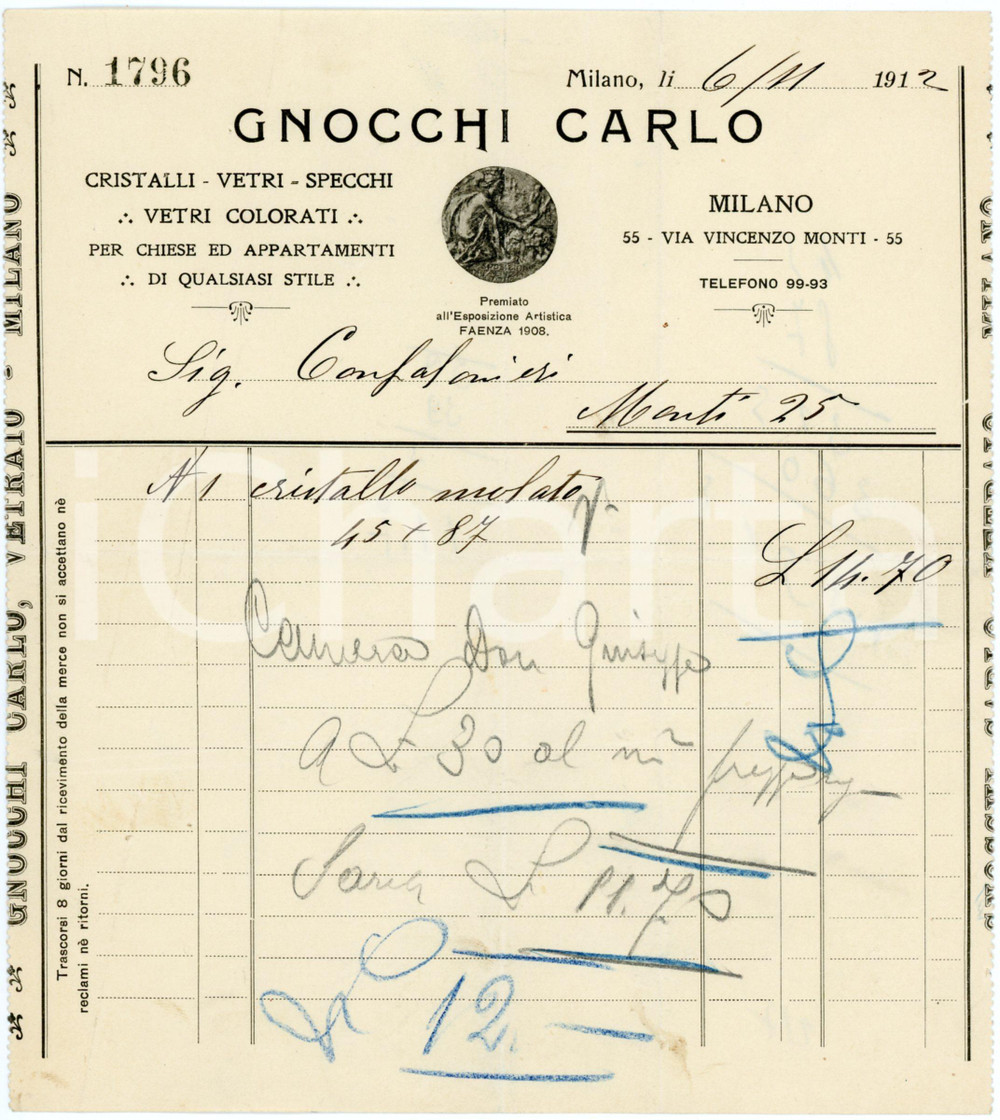 N. 1796
Milano, li 6/11 1912
GNOCCHI CARLO
CRISTALLI - VETRI - SPECCHI
∴ VETRI COLORATI ∴
PER CHIESE ED APPARTAMENTI
∴ DI QUALSIASI STILE ∴
Premiato
all'Esposizione Artistica
FAENZA 1908.
MILANO
55 - VIA VINCENZO MONTI - 55
TELEFONO 99-93
Sig. Confalonieri
Monti 25
N 1 cristallo molato
45 + 87
L 14.70
Camera Don Giuseppe
A L 30 al m²
Saria L 11.70
L 12.—
Trascorsi 8 giorni dal ricevimento della merce non si accettano nè
reclami nè ritorni.
GNOCCHI CARLO, VETRAIO - MILANO
GNOCCHI CARLO VETRAIO MILANO
iCharta